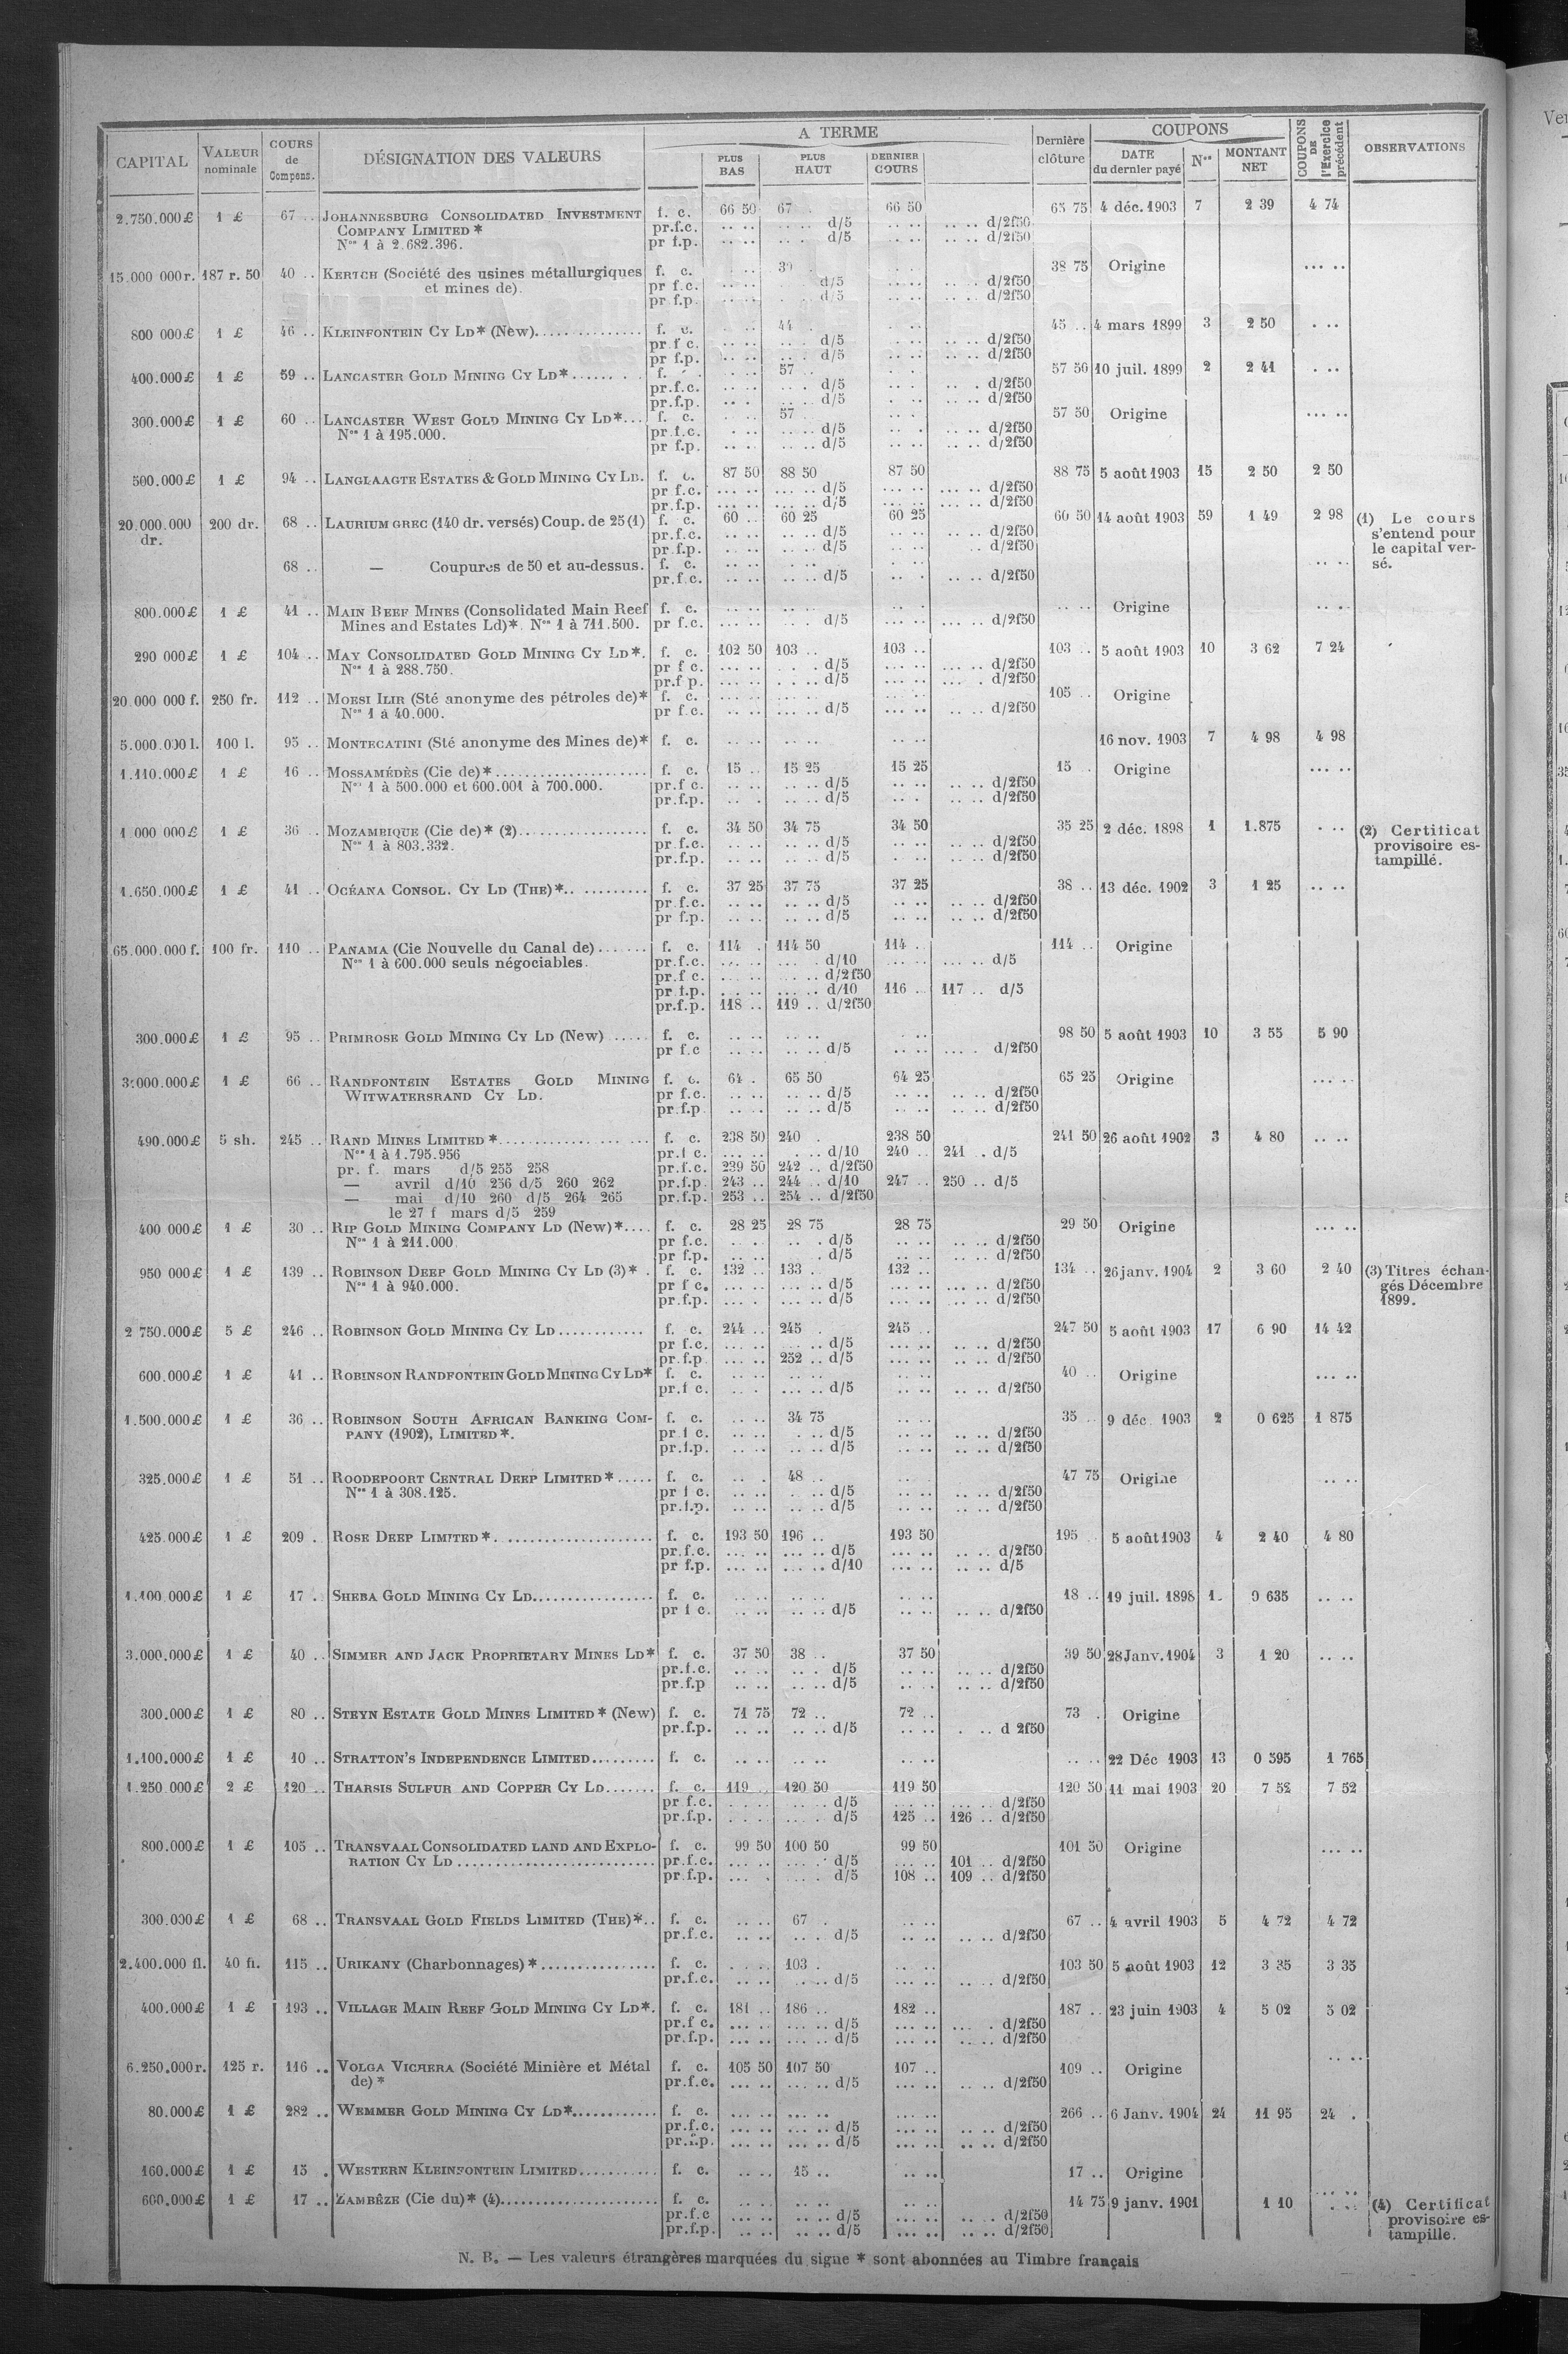 CAPITAL | VALEUR nominale | COURS de Compens. | DÉSIGNATION DES VALEURS | A TERME | PLUS BAS | PLUS HAUT | DERNIER COURS | Dernière clôture | COUPONS | DATE du dernier payé | Nos | MONTANT NET | COUPONS DE l'Exercice précédent | OBSERVATIONS
2.750.000 £ 1 £ 67 .. JOHANNESBURG CONSOLIDATED INVESTMENT f. c. 66 50 67 . 66 50 65 75 4 déc. 1903 7 2 39 4 74
COMPANY LIMITED * pr.f.c. .. .. .. .. d/5 .. .. .. .. d/2f50
Nos 1 à 2.682.396. pr f.p. .. .. .. . d/5 .. .. .. .. d/2f50
15.000 000 r. 187 r. 50 40 .. KERTCH (Société des usines métallurgiques f. c. 38 75 Origine ... ..
et mines de). pr f.c. d/5 d/2f50
pr f.p. d/5 d/2f50
800 000 £ 1 £ 46 .. KLEINFONTEIN CY LD* (New). f. c. 44 . 45 .. 4 mars 1899 3 2 50 . ..
pr f c. d/5 d/2f50
pr f.p. d/5 d/2f50
400.000 £ 1 £ 59 .. LANCASTER GOLD MINING CY LD* f. 57 .. 57 50 10 juil. 1899 2 2 41 . ..
pr.f.c. d/5 d/2f50
pr.f.p. d/5 d/2f50
300.000 £ 1 £ 60 .. LANCASTER WEST GOLD MINING CY LD*... f. c. 57 57 50 Origine ... ..
Nos 1 à 195.000. pr.f.c. d/5 d/2f50
pr f.p. d/5 d/2f50
500.000 £ 1 £ 94 .. LANGLAAGTE ESTATES & GOLD MINING CY LD. f. c. 87 50 88 50 87 50 88 75 5 août 1903 15 2 50 2 50
pr f.c. d/5 d/2f50
pr.f.p. d/5 d/2f50
20.000.000 dr. 200 dr. 68 .. LAURIUM GREC (140 dr. versés) Coup. de 25 (1) f. c. 60 .. 60 25 60 25 60 50 14 août 1903 59 1 49 2 98 (1) Le cours s'entend pour le capital versé.
pr.f.c. d/5 d/2f50
pr.f.p. d/5 d/2f50
68 .. — Coupures de 50 et au-dessus. f. c. .. ..
pr.f.c. d/5 d/2f50
800.000 £ 1 £ 41 .. MAIN REEF MINES (Consolidated Main Reef f. c. Origine
Mines and Estates Ld)*. Nos 1 à 711.500. pr f.c. d/5 d/2f50
290 000 £ 1 £ 104 .. MAY CONSOLIDATED GOLD MINING CY LD*. f. c. 102 50 103 .. 103 .. 103 .. 5 août 1903 10 3 62 7 24
Nos 1 à 288.750. pr f c. d/5 d/2f50
pr.f p. d/5 d/2f50
20.000 000 f. 250 fr. 112 .. MOESI ILIR (Sté anonyme des pétroles de)* f. c. 105 .. Origine
Nos 1 à 40.000. pr f.c. d/5 d/2f50
5.000.000 l. 100 l. 95 .. MONTECATINI (Sté anonyme des Mines de)* f. c. 16 nov. 1903 7 4 98 4 98
1.110.000 £ 1 £ 16 .. MOSSAMÉDÈS (Cie de)* f. c. 15 .. 15 25 15 25 15 . Origine ... ..
Nos 1 à 500.000 et 600.001 à 700.000. pr.f c. d/5 d/2f50
pr.f.p. d/5 d/2f50
1 000 000 £ 1 £ 36 .. MOZAMBIQUE (Cie de)* (2) f. c. 34 50 34 75 34 50 35 25 2 déc. 1898 1 1.875 . .. (2) Certificat provisoire estampillé.
Nos 1 à 803.332. pr f.c. d/5 d/2f50
pr.f.p. d/5 d/2f50
1.650.000 £ 1 £ 41 .. OCÉANA CONSOL. CY LD (THE)* f. c. 37 25 37 75 37 25 38 .. 13 déc. 1902 3 1 25 .. ..
pr f.c. d/5 d/2f50
pr f.p. d/5 d/2f50
65.000.000 f. 100 fr. 110 .. PANAMA (Cie Nouvelle du Canal de) f. c. 114 . 114 50 114 .. 114 .. Origine
Nos 1 à 600.000 seuls négociables. pr.f.c. d/10 d/5
pr.f c. d/2f50
pr f.p. d/10 116 .. 117 .. d/5
pr.f.p. 118 .. 119 .. d/2f50
300.000 £ 1 £ 95 .. PRIMROSE GOLD MINING CY LD (New) f. c. 98 50 5 août 1903 10 3 55 5 90
pr f.c d/5 d/2f50
3.000.000 £ 1 £ 66 .. RANDFONTEIN ESTATES GOLD MINING f. c. 64 . 65 50 64 25 65 25 Origine
WITWATERSRAND CY LD. pr f.c. d/5 d/2f50
pr.f.p d/5 d/2f50
490.000 £ 5 sh. 245 .. RAND MINES LIMITED * f. c. 238 50 240 . 238 50 241 50 26 août 1902 3 4 80 .. ..
Nos 1 à 1.795.956 pr.f c. d/10 240 .. 241 . d/5
pr. f. mars d/5 255 258 pr.f.c. 239 50 242 .. d/2f50
— avril d/10 256 d/5 260 262 pr.f.p. 243 .. 244 .. d/10 247 .. 250 .. d/5
— mai d/10 260 d/5 264 265 pr.f.p. 253 .. 254 .. d/2f50
le 27 f mars d/5 259
400 000 £ 1 £ 30 .. RIP GOLD MINING COMPANY LD (New)* f. c. 28 25 28 75 28 75 29 50 Origine ... ..
Nos 1 à 211.000 pr f.c. d/5 d/2f50
pr f.p. d/5 d/2f50
950 000 £ 1 £ 139 .. ROBINSON DEEP GOLD MINING CY LD (3)* f. c. 132 .. 133 . 132 .. 134 .. 26 janv. 1904 2 3 60 2 40 (3) Titres échangés Décembre 1899.
Nos 1 à 940.000. pr f c. d/5 d/2f50
pr.f.p. d/5 d/2f50
2 750.000 £ 5 £ 246 .. ROBINSON GOLD MINING CY LD f. c. 244 .. 245 . 245 .. 247 50 5 août 1903 17 6 90 14 42
pr f.c. d/5 d/2f50
pr.f.p 252 .. d/5 d/2f50
600.000 £ 1 £ 41 .. ROBINSON RANDFONTEIN GOLD MINING CY LD* f. c. 40 .. Origine ... ..
pr.f c. d/5 d/2f50
1.500.000 £ 1 £ 36 .. ROBINSON SOUTH AFRICAN BANKING COM- f. c. 34 75 35 .. 9 déc. 1903 2 0 625 1 875
PANY (1902), LIMITED *. pr f c. d/5 d/2f50
pr.f.p. d/5 d/2f50
325.000 £ 1 £ 51 .. ROODEPOORT CENTRAL DEEP LIMITED * f. c. 48 .. 47 75 Origine .. ..
Nos 1 à 308.125. pr f c. d/5 d/2f50
pr.f.p. d/5 d/2f50
425.000 £ 1 £ 209 . ROSE DEEP LIMITED * f. c. 193 50 196 .. 193 50 195 5 août 1903 4 2 40 4 80
pr.f.c. d/5 d/2f50
pr f.p. d/10 d/5
1.100 000 £ 1 £ 17 . SHEBA GOLD MINING CY LD f. c. 18 .. 19 juil. 1898 1. 0 635 .. ..
pr f c. d/5 d/2f50
3.000.000 £ 1 £ 40 .. SIMMER AND JACK PROPRIETARY MINES LD* f. c. 37 50 38 .. 37 50 39 50 28 Janv. 1904 3 1 20 .. ..
pr.f.c. d/5 d/2f50
pr.f.p d/5 d/2f50
300.000 £ 1 £ 80 .. STEYN ESTATE GOLD MINES LIMITED * (New) f. c. 71 75 72 .. 72 .. 73 . Origine
pr.f.p. d/5 d 2f50
1.100.000 £ 1 £ 10 .. STRATTON'S INDEPENDENCE LIMITED f. c. 22 Déc 1903 13 0 595 1 765
1.250 000 £ 2 £ 120 .. THARSIS SULFUR AND COPPER CY LD f. c. 119 . 120 50 119 50 120 50 11 mai 1903 20 7 52 7 52
pr f.c. d/5 d/2f50
pr.f.p. d/5 125 .. 126 .. d/2f50
800.000 £ 1 £ 105 .. TRANSVAAL CONSOLIDATED LAND AND EXPLO- f. c. 99 50 100 50 99 50 101 50 Origine ... ..
RATION CY LD pr.f.c. d/5 101 .. d/2f50
pr.f.p. d/5 108 .. 109 .. d/2f50
300.000 £ 1 £ 68 .. TRANSVAAL GOLD FIELDS LIMITED (THE)*.. f. c. 67 . 67 .. 4 avril 1903 5 4 72 4 72
pr.f.c. d/5 d/2f50
2.400.000 fl. 40 fl. 115 .. URIKANY (Charbonnages) * f. c. 103 . 103 50 5 août 1903 12 3 35 3 35
pr.f.c. d/5 d/2f50
400.000 £ 1 £ 193 .. VILLAGE MAIN REEF GOLD MINING CY LD*. f. c. 181 .. 186 .. 182 .. 187 .. 23 juin 1903 4 5 02 5 02
pr.f c. d/5 d/2f50
pr.f.p. d/5 d/2f50
6.250.000 r. 125 r. 116 .. VOLGA VICHERA (Société Minière et Métal f. c. 105 50 107 50 107 .. 109 .. Origine .. ..
de) * pr.f.c. d/5 d/2f50
80.000 £ 1 £ 282 .. WEMMER GOLD MINING CY LD* f. c. 266 .. 6 Janv. 1904 24 11 95 24 .
pr.f.c. d/5 d/2f50
pr.f.p. d/5 d/2f50
160.000 £ 1 £ 15 . WESTERN KLEINFONTEIN LIMITED f. c. 15 .. 17 .. Origine
600.000 £ 1 £ 17 .. ZAMBÈZE (Cie du)* (4) f. c. 14 75 9 janv. 1901 1 10 (4) Certificat provisoire estampille.
pr.f.c d/5 d/2f50
pr.f.p. d/5 d/2f50
N. B. — Les valeurs étrangères marquées du signe * sont abonnées au Timbre français